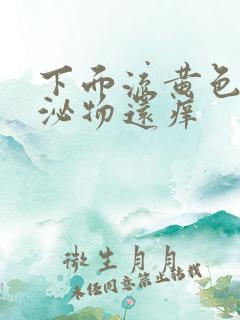 下面流黄色
泌物还痒
微生月月
未经同意禁止转载